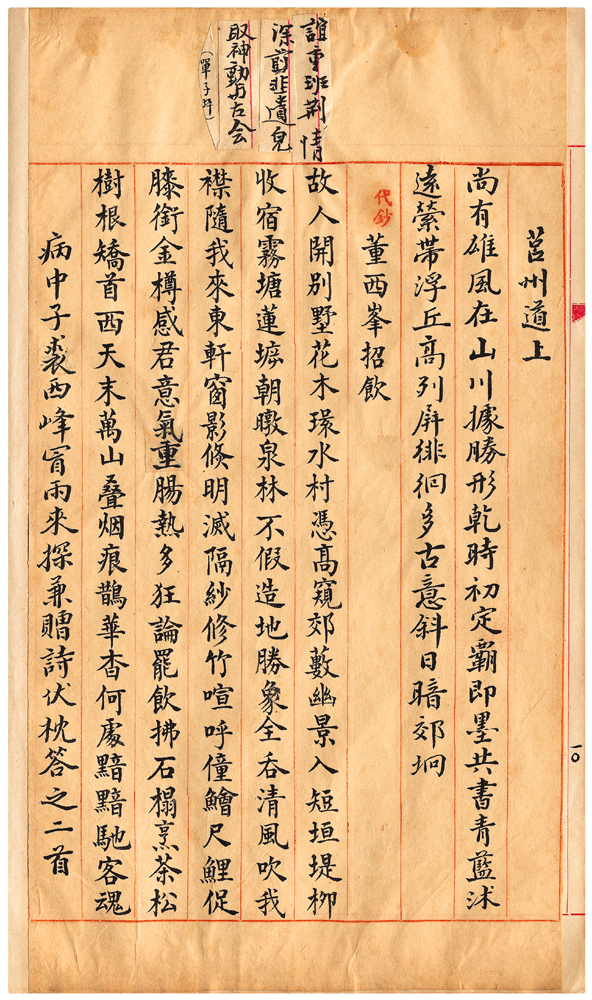 誼重班荆情
深剪韭遺皃
取神動与古会
（單子抨）
莒州道上
尚有雄風在山川據勝形乾時初定霸即墨共書青藍沭
遠縈帶浮丘高列屏徘徊多古意斜日暗郊坰
代鈔
董西峯招飲
故人開別墅花木環水村憑高窺郊藪幽景入短垣堤柳
收宿霧塘蓮墟朝暾泉林不假造地勝象全吞清風吹我
襟隨我來東軒窗影倏明滅隔紗修竹喧呼僮鱠尺鯉促
膝銜金樽感君意氣重腸熱多狂論罷飲拂石榻烹茶松
樹根矯首西天末萬山叠烟痕鵲華杳何處黯黯馳客魂
病中子裘西峰冒雨來探兼贈詩伏枕答之二首
一〇